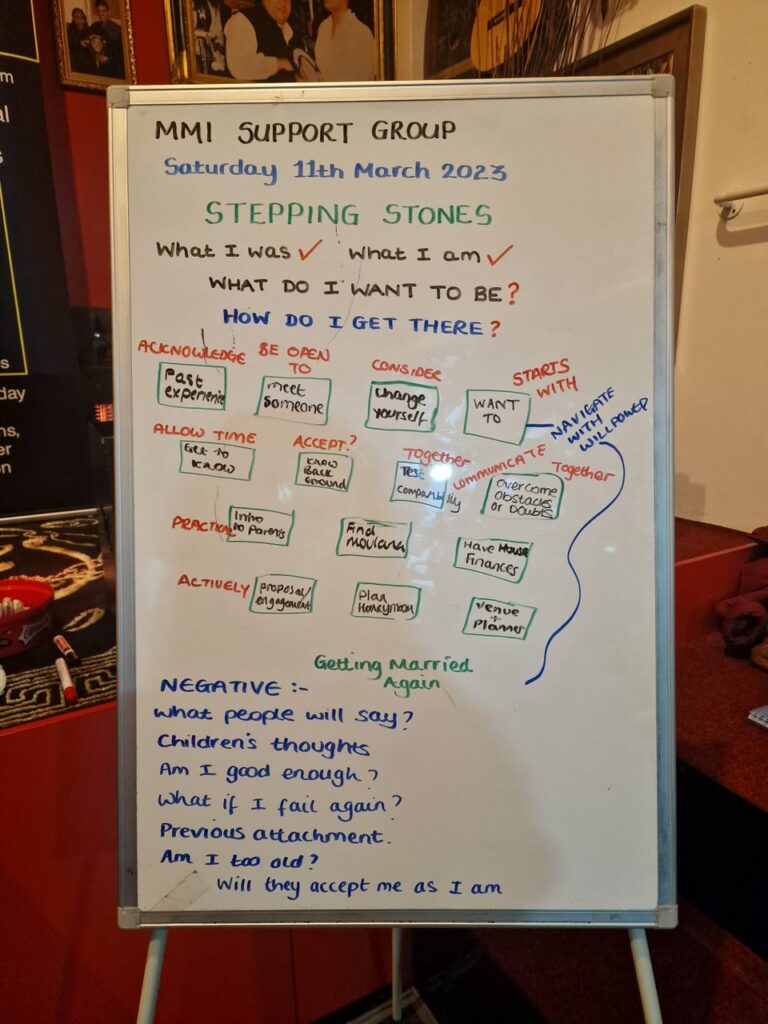 MMI SUPPORT GROUP
Saturday 11th March 2023
STEPPING STONES
What I was ✓ What I am ✓
WHAT DO I WANT TO BE?
HOW DO I GET THERE?
ACKNOWLEDGE
Past
experience
BE OPEN
TO
meet
someone
CONSIDER
Change
yourself
STARTS
WITH
WANT
TO
NAVIGATE
WITH
WILLPOWER
ALLOW TIME
Get to
know
ACCEPT?
know
Back
ground
Together
Test
COMMUNICATE
Together
overcome
obstacles
or Doubts
PRACTICAL
Intro
to Parents
Find
Moulana
Have House
Finances
ACTIVELY
Proposal/
engagement
Plan
Honeymoon
Venue
+
Planner
Getting Married
Again
NEGATIVE :-
What people will say?
Children's thoughts
Am I good enough?
What if I fail again?
Previous attachment.
Am I too old?
Will they accept me as I am
m
al
s
s
day
ns,
er
on